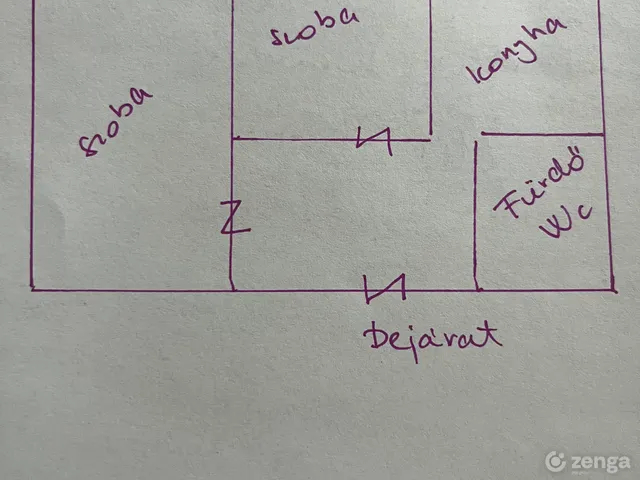 szoba
konyha
szoba
Fürdő
Wc
Bejárat
zenga